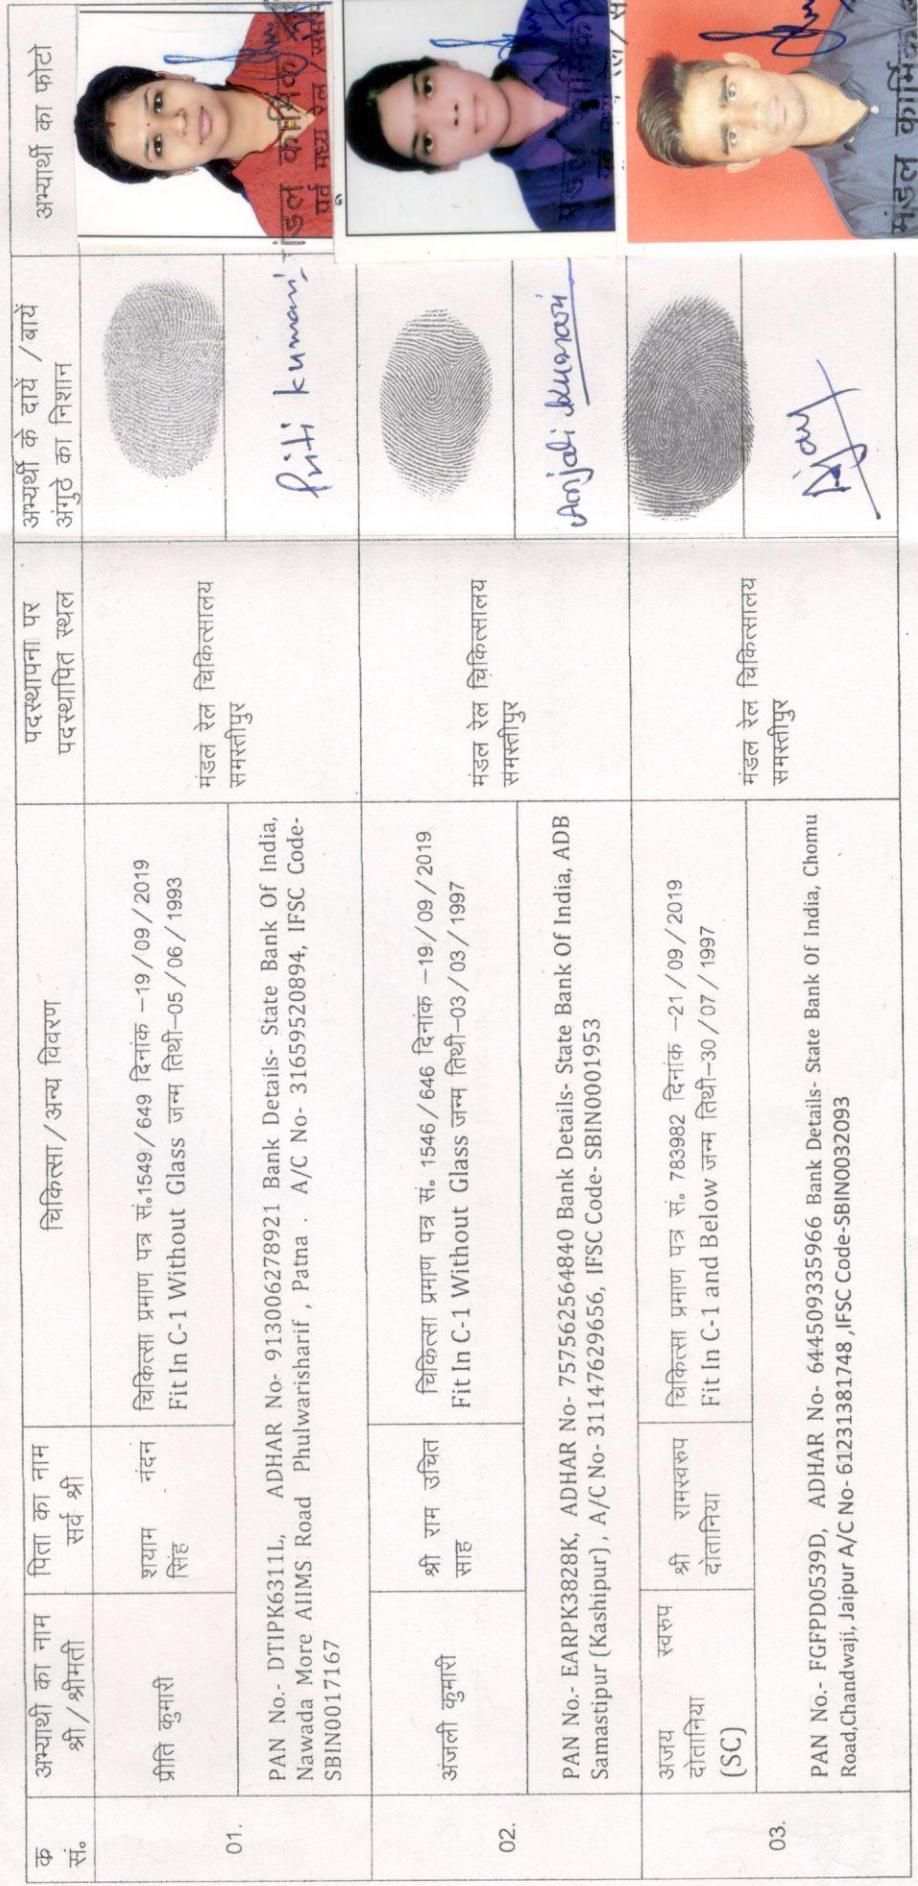 क सं॰
अभ्याथी का नाम श्री/श्रीमती
पिता का नाम सर्व श्री
चिकित्सा/अन्य विवरण
पदस्थापना पर पदस्थापित स्थल
अभ्यर्थी के दायें/बायें अंगुठे का निशान
अभ्यार्थी का फोटो
01.
प्रीति कुमारी
शयाम नंदन
सिंह
चिकित्सा प्रमाण पत्र सं॰1549/649 दिनांक –19/09/2019
Fit In C-1 Without Glass जन्म तिथी–05/06/1993
मंडल रेल चिकित्सालय
समस्तीपुर
PAN No.- DTIPK6311L, ADHAR No- 913006278921 Bank Details- State Bank Of India,
Nawada More AIIMS Road Phulwarisharif , Patna . A/C No- 31659520894, IFSC Code-
SBIN0017167
Priti kumari
02.
अंजली कुमारी
श्री राम उचित
साह
चिकित्सा प्रमाण पत्र सं॰ 1546/646 दिनांक –19/09/2019
Fit In C-1 Without Glass जन्म तिथी–03/03/1997
मंडल रेल चिकित्सालय
समस्तीपुर
PAN No.- EARPK3828K, ADHAR No- 757562564840 Bank Details- State Bank Of India, ADB
Samastipur (Kashipur) , A/C No- 31147629656, IFSC Code- SBIN0001953
Anjali kumari
03.
अजय स्वरुप
दोतानिया
(SC)
श्री रामस्वरुप
दोतानिया
चिकित्सा प्रमाण पत्र सं॰ 783982 दिनांक –21/09/2019
Fit In C-1 and Below जन्म तिथी–30/07/1997
मंडल रेल चिकित्सालय
समस्तीपुर
PAN No.- FGFPD0539D, ADHAR No- 644509335966 Bank Details- State Bank Of India, Chomu
Road,Chandwaji, Jaipur A/C No- 61231381748 ,IFSC Code-SBIN0032093
Ajay
मंडल कार्मिक